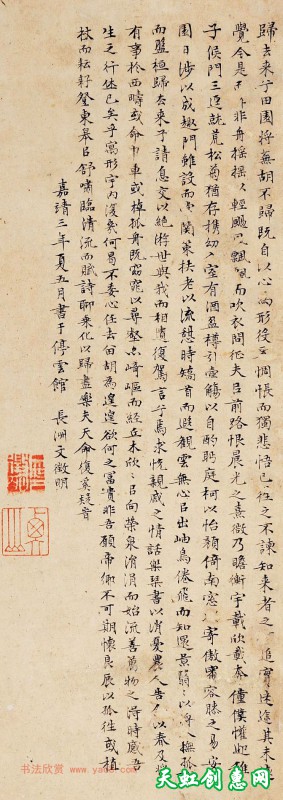 歸去來兮田園將蕪胡不歸既自以心為形役奚惆悵而獨悲悟已往之不諫知來者之追實迷途其未遠
覺今是非舟搖搖以輕颺風飄飄而吹衣問征夫以前路恨晨光之熹微乃瞻衡宇載欣載奔僮僕懽迎稚
子候門三逕就荒松菊猶存攜幼入室有酒盈樽引壺觴以自酌眄庭柯以怡顏倚南窓寄傲審容膝之易安
園日涉以成趣門雖設而關策扶老以流憩時矯首而遐觀雲無心以出岫鳥倦飛而知還景翳以將入撫孤
而盤桓歸去來兮請息交以絕遊世與我而相遺復駕言兮焉求悅親戚之情話樂琴書以消憂農人告余以春及將
有事於西疇或命巾車或棹孤舟既窈窕以尋壑亦崎嶇而經丘木欣以向榮泉涓涓而始流善萬物之得時感吾
生之行休已矣乎寓形宇內復幾何曷不委心任去留胡為遑遑欲何之富貴非吾願帝鄉不可期懷良辰以孤往或植
杖而耘耔登東皋以舒嘯臨清流而賦詩聊乘化以歸盡樂夫天命復奚疑
嘉靖三年夏五月書于停雲館 長洲文徵明
书法欣赏
天虹创意网